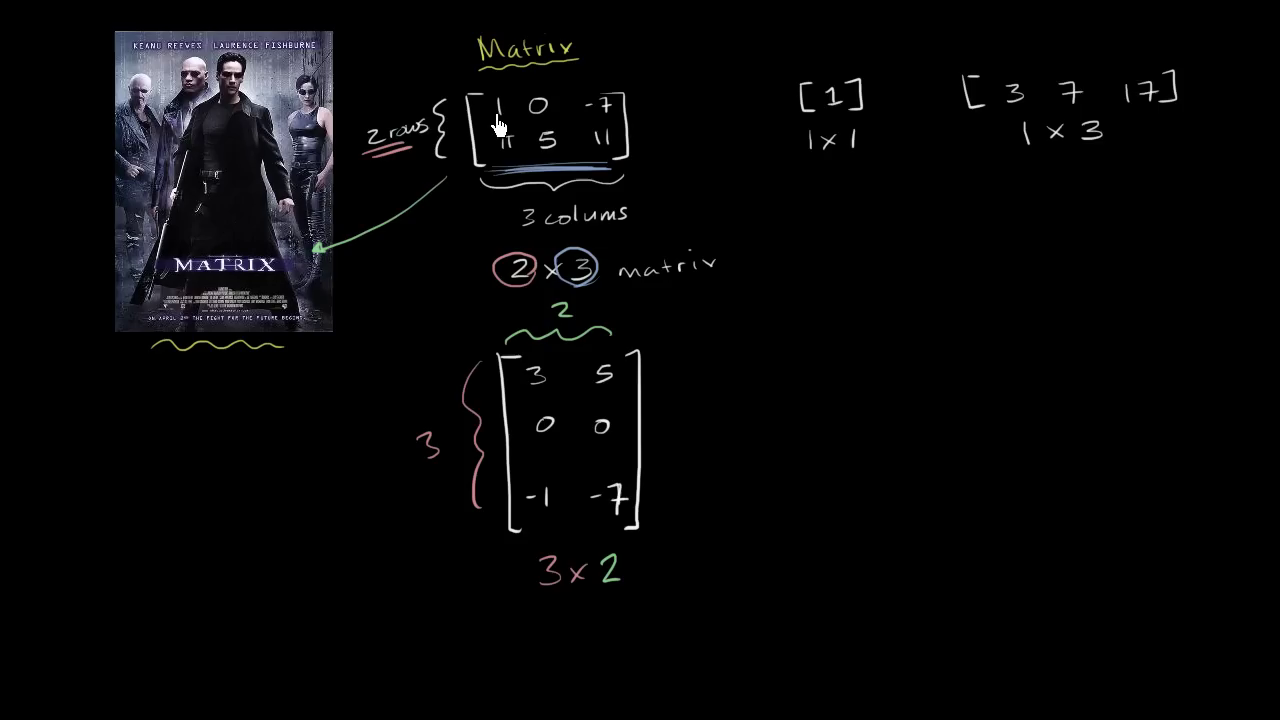 KEANU REEVES LAURENCE FISHBURNE
MATRIX
ON APRIL 2ND THE FIGHT FOR THE FUTURE BEGINS.
Matrix
2 rows
[1 0 -7
π 5 11]
3 colums
2 x 3 matrix
2
3
[3 5
0 0
-1 -7]
3 x 2
[1]
1 x 1
[3 7 17]
1 x 3